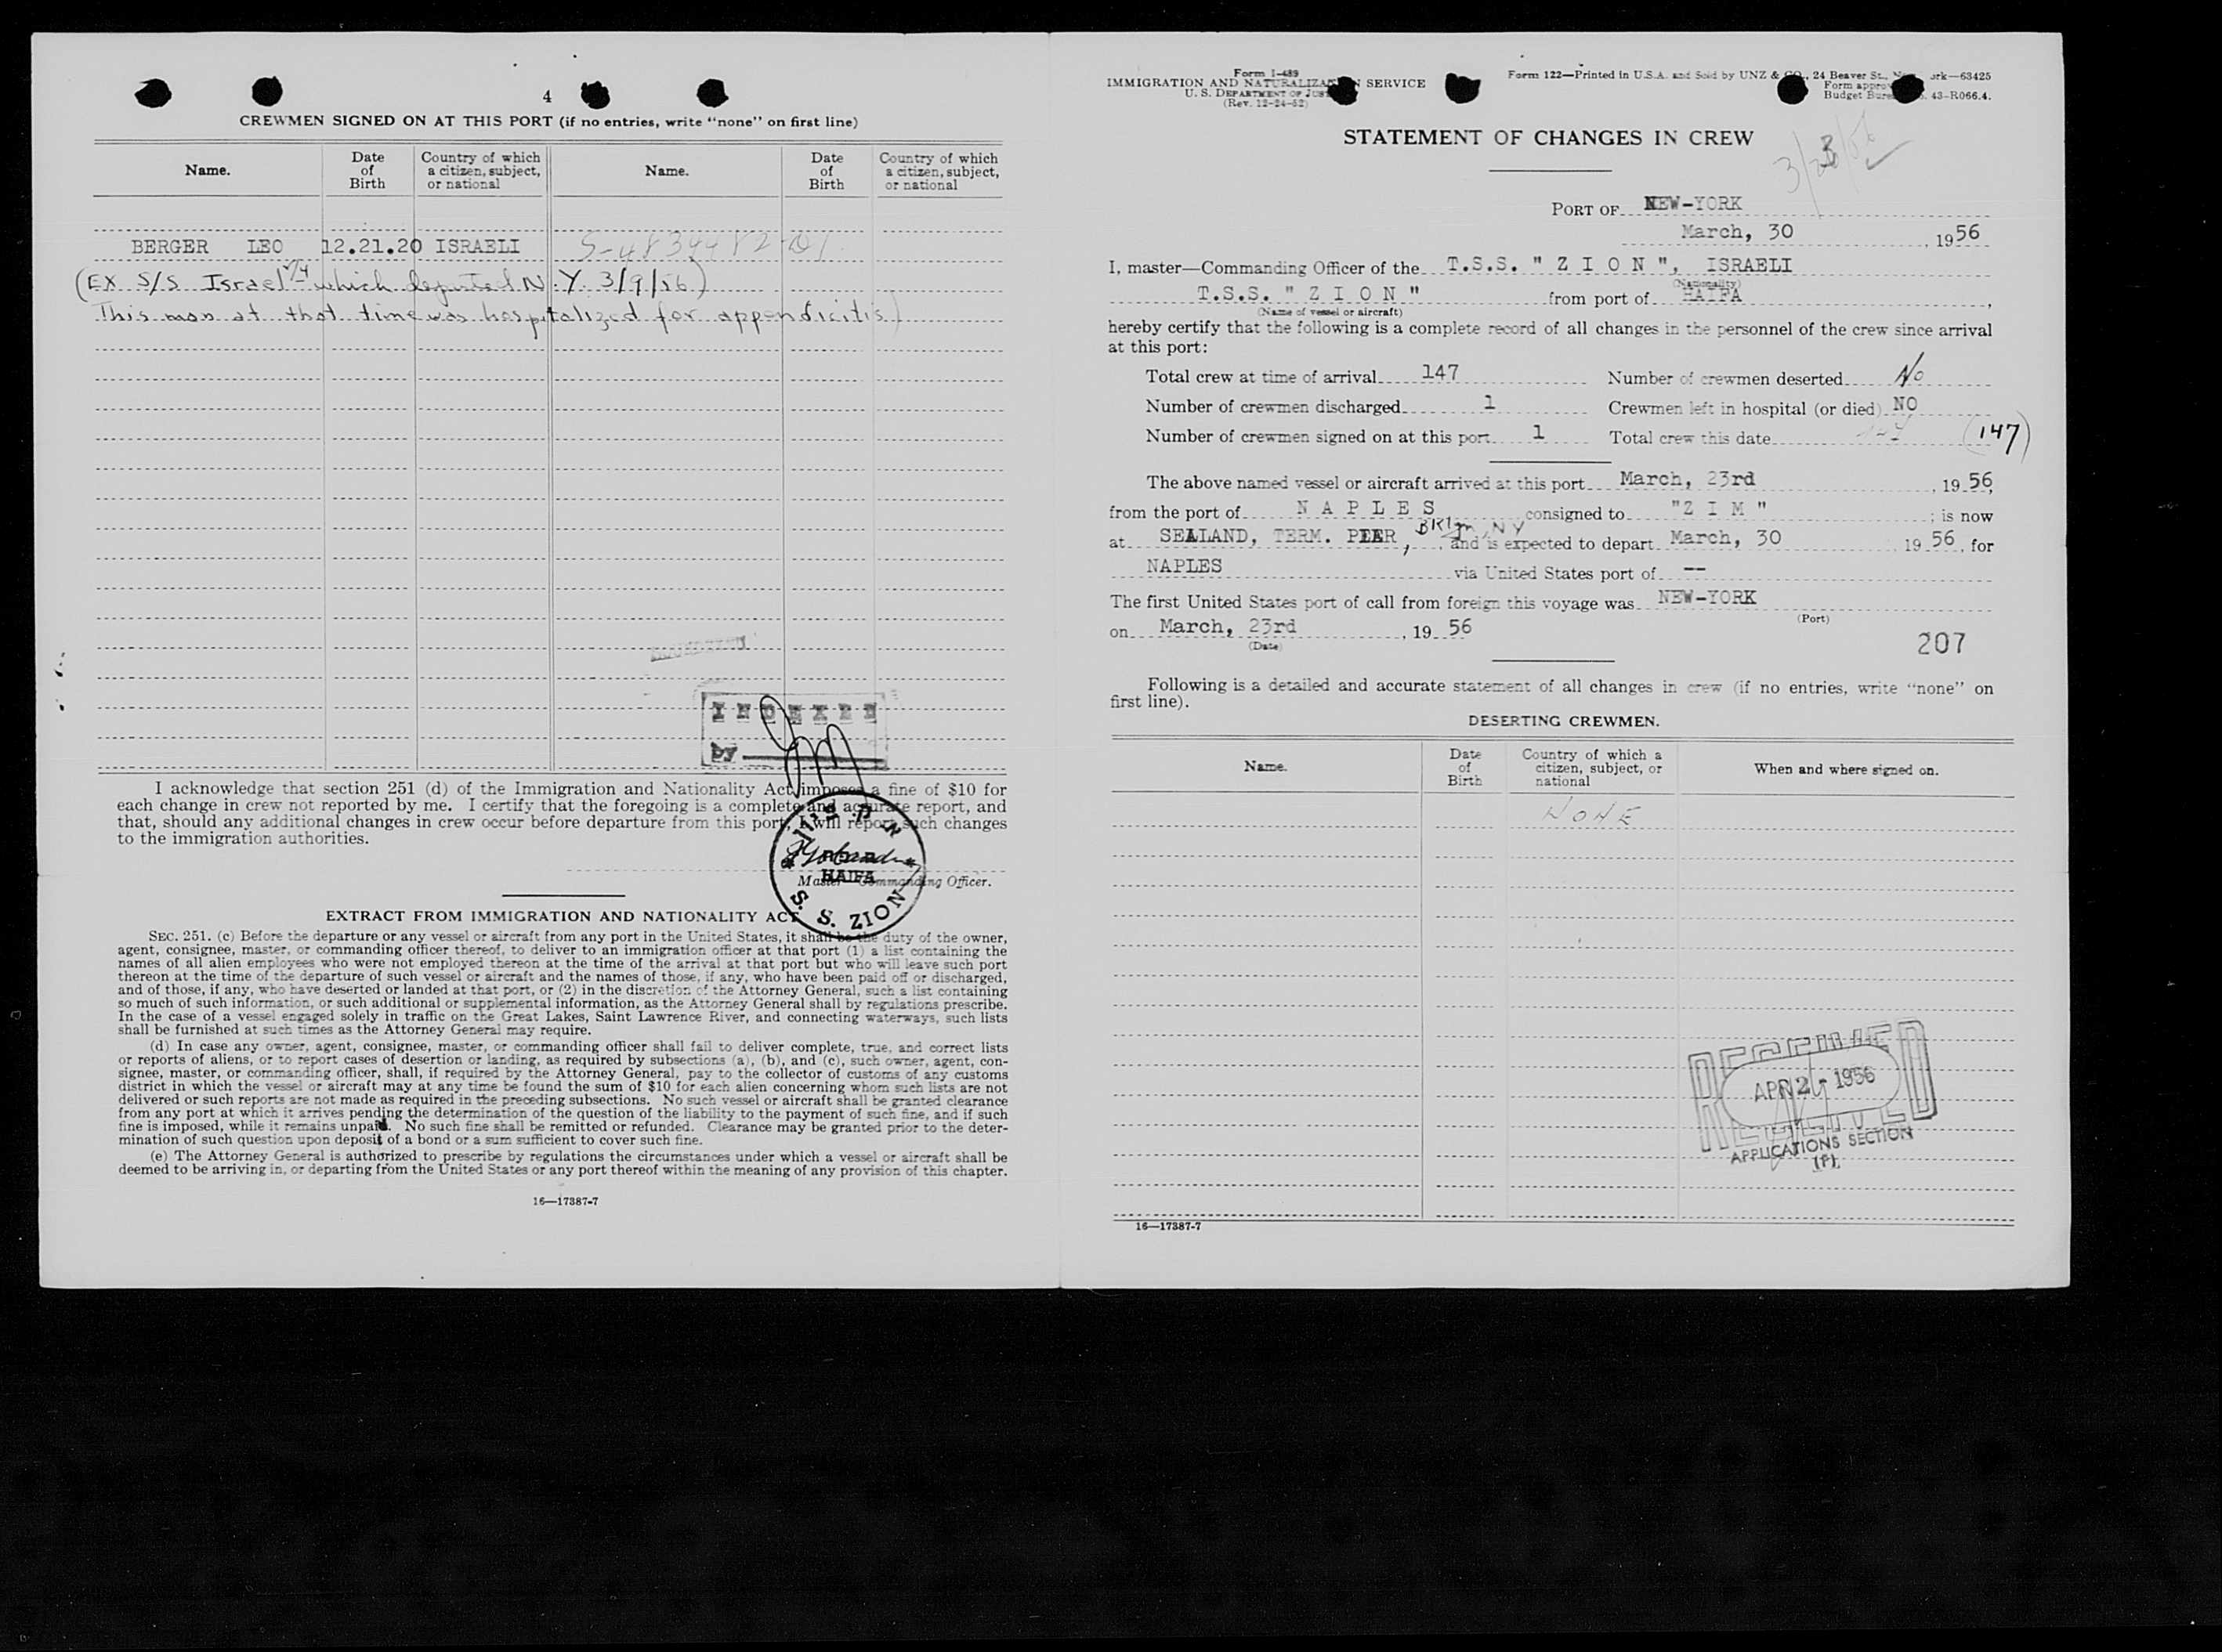 4
CREWMEN SIGNED ON AT THIS PORT (if no entries, write "none" on first line)
Name.
Date of Birth
Country of which a citizen, subject, or national
Name.
Date of Birth
Country of which a citizen, subject, or national
BERGER LEO 12.21.20 ISRAELI
(EX S/S Israel which departed N.Y. 3/9/56)
This man at that time was hospitalized for appendicitis)
INDEXED
by
I acknowledge that section 251 (d) of the Immigration and Nationality Act imposes a fine of $10 for
each change in crew not reported by me. I certify that the foregoing is a complete and accurate report, and
that, should any additional changes in crew occur before departure from this port, I will report such changes
to the immigration authorities.
HAIFA
S. S. ZION
Master Commanding Officer.
EXTRACT FROM IMMIGRATION AND NATIONALITY ACT
SEC. 251. (c) Before the departure or any vessel or aircraft from any port in the United States, it shall be the duty of the owner,
agent, consignee, master, or commanding officer thereof, to deliver to an immigration officer at that port (1) a list containing the
names of all alien employees who were not employed thereon at the time of the arrival at that port but who will leave such port
thereon at the time of the departure of such vessel or aircraft and the names of those, if any, who have been paid off or discharged,
and of those, if any, who have deserted or landed at that port, or (2) in the discretion of the Attorney General, such a list containing
so much of such information, or such additional or supplemental information, as the Attorney General shall by regulations prescribe.
In the case of a vessel engaged solely in traffic on the Great Lakes, Saint Lawrence River, and connecting waterways, such lists
shall be furnished at such times as the Attorney General may require.
(d) In case any owner, agent, consignee, master, or commanding officer shall fail to deliver complete, true, and correct lists
or reports of aliens, or to report cases of desertion or landing, as required by subsections (a), (b), and (c), such owner, agent, con-
signee, master, or commanding officer, shall, if required by the Attorney General, pay to the collector of customs of any customs
district in which the vessel or aircraft may at any time be found the sum of $10 for each alien concerning whom such lists are not
delivered or such reports are not made as required in the preceding subsections. No such vessel or aircraft shall be granted clearance
from any port at which it arrives pending the determination of the question of the liability to the payment of such fine, and if such
fine is imposed, while it remains unpaid. No such fine shall be remitted or refunded. Clearance may be granted prior to the deter-
mination of such question upon deposit of a bond or a sum sufficient to cover such fine.
(e) The Attorney General is authorized to prescribe by regulations the circumstances under which a vessel or aircraft shall be
deemed to be arriving in, or departing from the United States or any port thereof within the meaning of any provision of this chapter.
16—17387-7
Form I-489
IMMIGRATION AND NATURALIZATION SERVICE
U. S. DEPARTMENT OF JUST
(Rev. 12-24-52)
Form 122—Printed in U.S.A. and Sold by UNZ & CO., 24 Beaver St., ork—63425
Form approv
Budget Bureau 43-R066.4.
STATEMENT OF CHANGES IN CREW
PORT OF NEW-YORK
March, 30, 1956
I, master—Commanding Officer of the T.S.S. " Z I O N ", ISRAELI
(Nationality)
T.S.S. " Z I O N " from port of HAIFA,
(Name of vessel or aircraft)
hereby certify that the following is a complete record of all changes in the personnel of the crew since arrival
at this port:
Total crew at time of arrival 147 Number of crewmen deserted No
Number of crewmen discharged 1 Crewmen left in hospital (or died) NO
Number of crewmen signed on at this port 1 Total crew this date (147)
The above named vessel or aircraft arrived at this port March, 23rd, 1956,
from the port of N A P L E S consigned to "Z I M "; is now
at SEALAND, TERM. PIER, Bklyn, NY, and is expected to depart March, 30 1956, for
NAPLES via United States port of --
The first United States port of call from foreign this voyage was NEW-YORK
(Port)
on March, 23rd, 1956
(Date)
207
Following is a detailed and accurate statement of all changes in crew (if no entries, write "none" on
first line).
DESERTING CREWMEN.
Name.
Date of Birth
Country of which a citizen, subject, or national
When and where signed on.
NONE
RECEIVED
APR 2 - 1956
RECEIVED
APPLICATIONS SECTION
(P)
16—17387-7